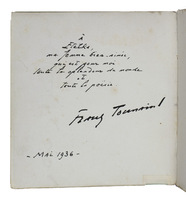 À
ma femme bien-aimée,
qui est pour moi
toute la splendeur du monde
et
toute la poésie
Franz Toussaint
- MAI 1936 -